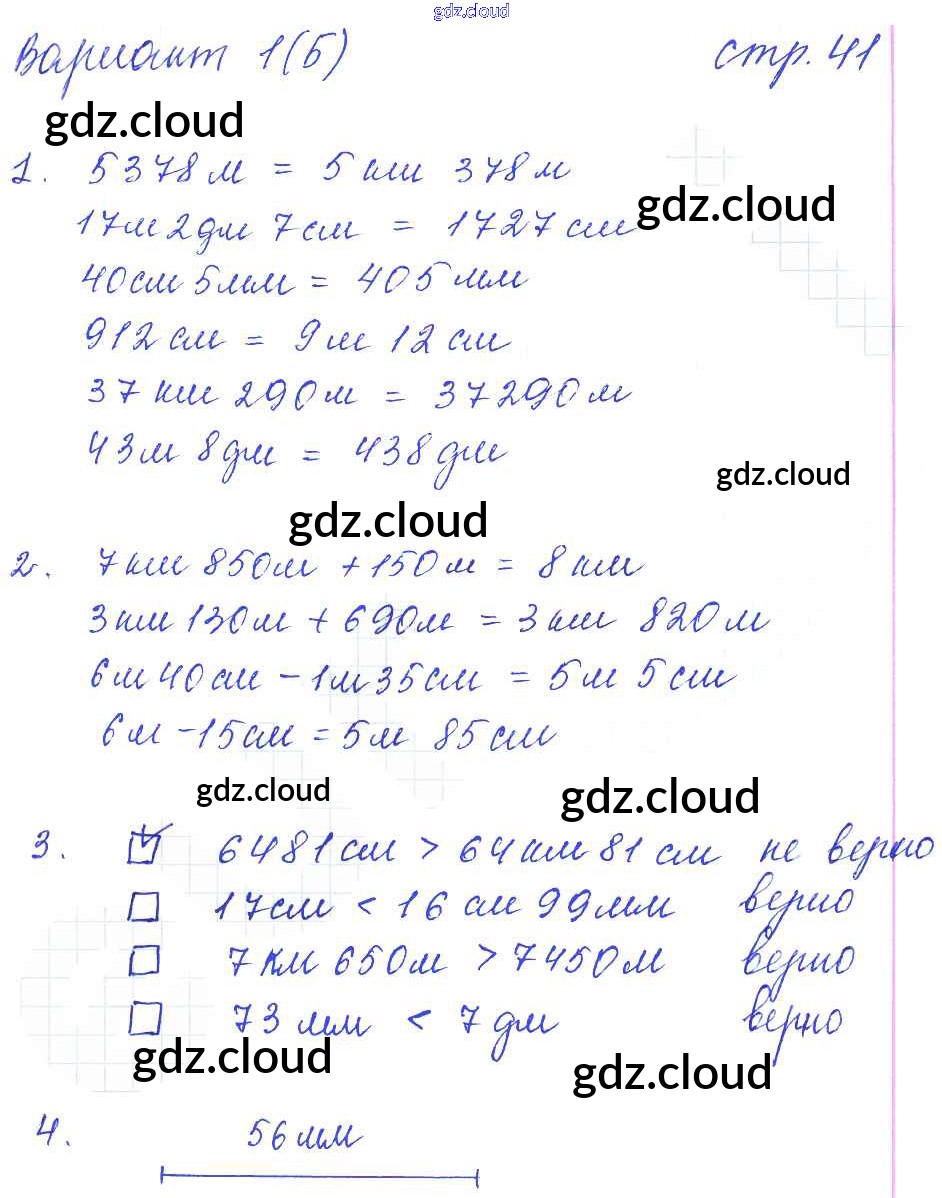 gdz.cloud
Вариант 1(б) стр. 41
gdz.cloud
1. 5378м = 5 км 378м
gdz.cloud
17м 2дм 7см = 1727см
40см 5мм = 405 мм
912см = 9м 12см
37 км 290м = 37290м
43м 8дм = 438дм
gdz.cloud
gdz.cloud
2. 7км 850м + 150м = 8км
3км 130м + 690м = 3км 820м
6м 40см - 1м 35см = 5м 5см
6м - 15см = 5м 85см
gdz.cloud gdz.cloud
3. ☑ 6481см > 64км 81см не верно
☐ 17см < 16см 99мм верно
☐ 7км 650м > 7450м верно
☐ 73 мм < 7дм верно
gdz.cloud gdz.cloud
4. 56мм